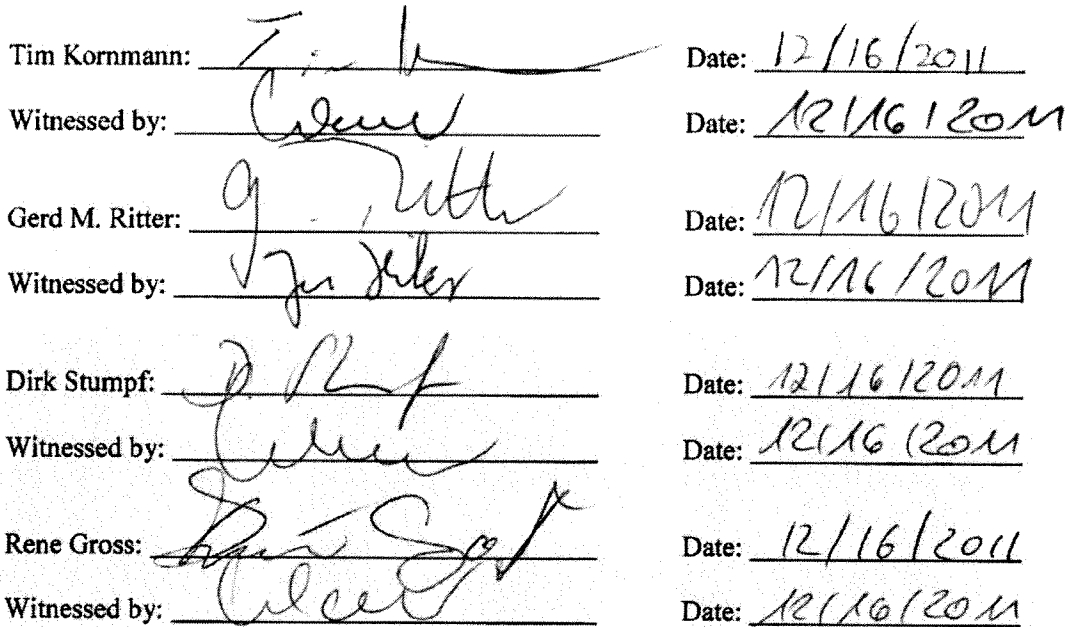 Tim Kornmann: Date: 12/16/2011
Witnessed by: Date: 12/16/2011
Gerd M. Ritter: Date: 12/16/2011
Witnessed by: Date: 12/16/2011
Dirk Stumpf: Date: 12/16/2011
Witnessed by: Date: 12/16/2011
Rene Gross: Date: 12/16/2011
Witnessed by: Date: 12/16/2011